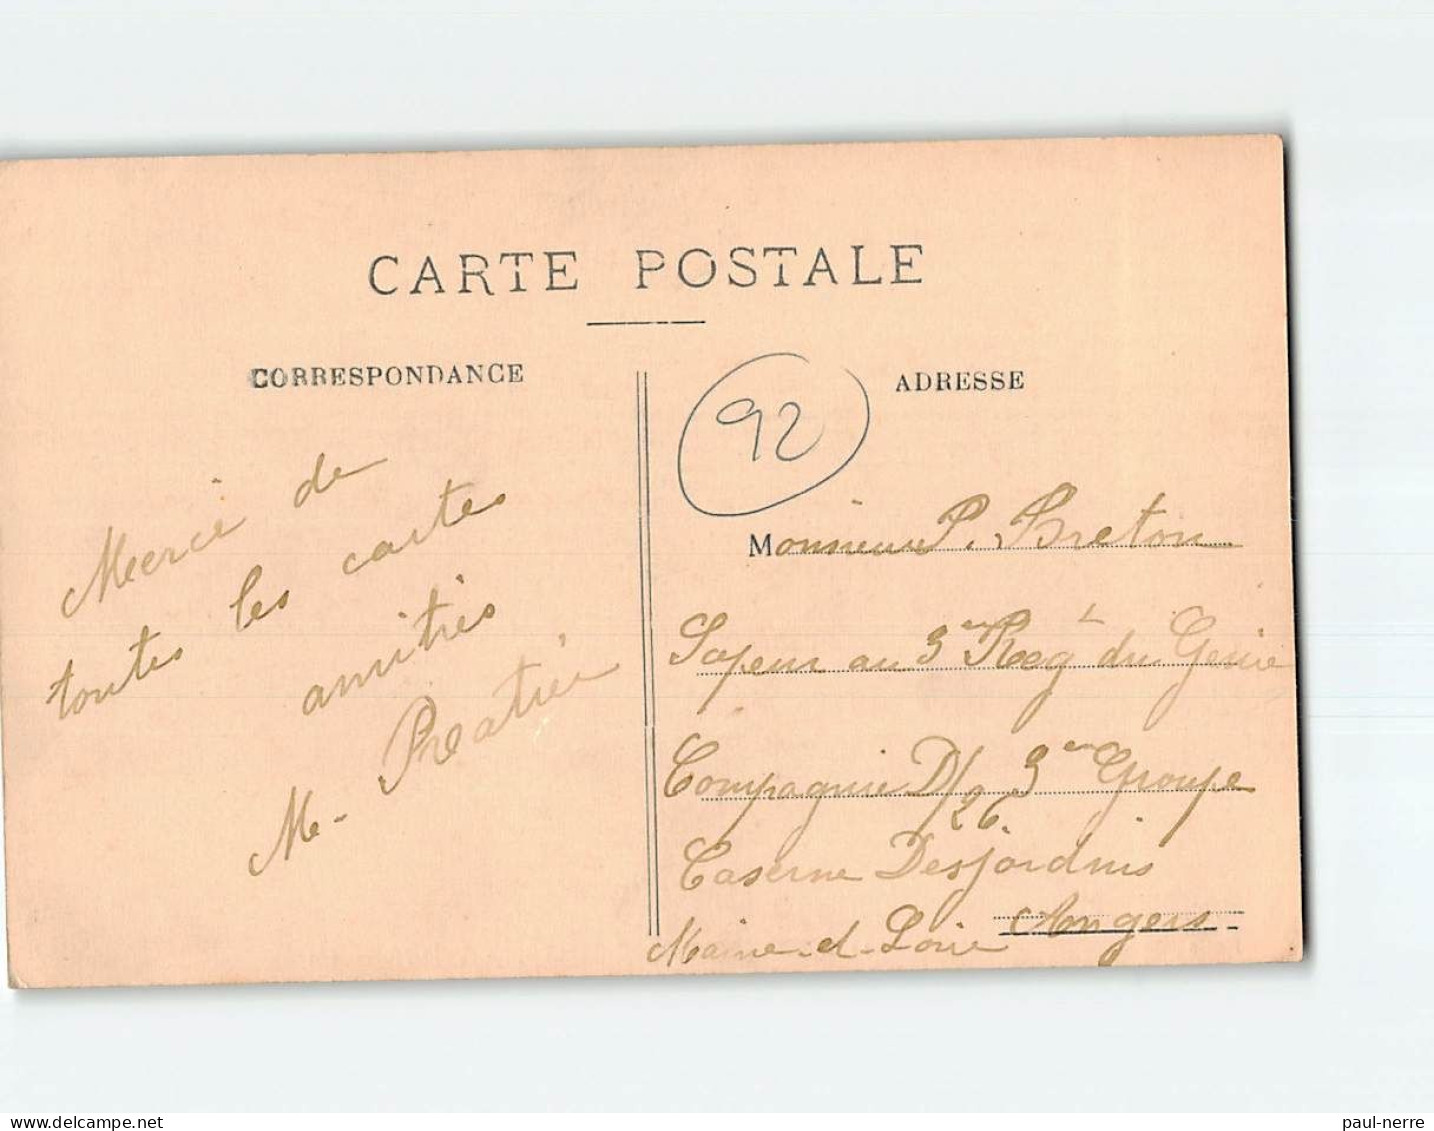 CARTE POSTALE
CORRESPONDANCE
Merci de
toutes les cartes
amitiés
M.
92
ADRESSE
Monsieur P. Breton
Sapeur au 3em Regt du Génie
Compagnie D/26. 3em Groupe
Caserne Desjardins
Angers
Maine-et-Loire
paul-nerre